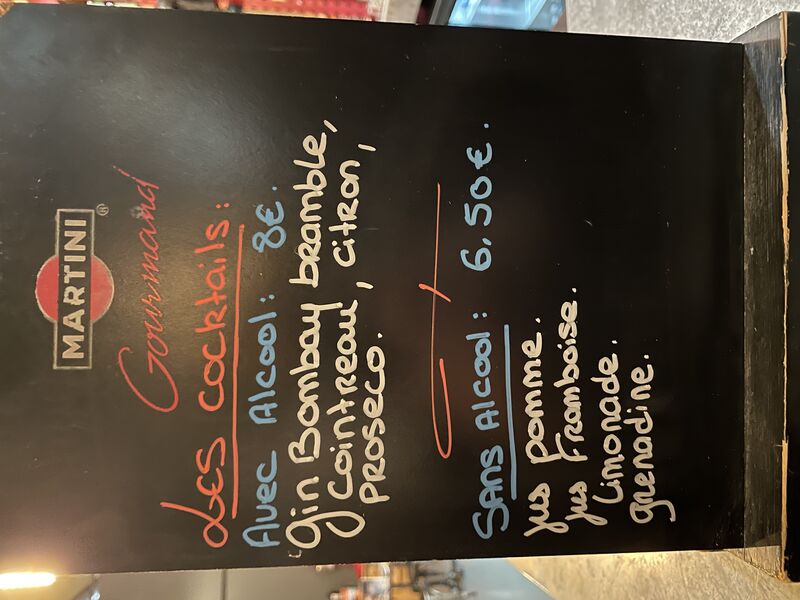 MARTINI
®
Gourmand
Les cocktails:
Avec Alcool: 8€.
Gin Bombay bramble,
Cointreau, citron,
proseco.
Sans Alcool: 6,50€.
Jus pomme.
Jus Framboise.
Limonade.
grenadine.